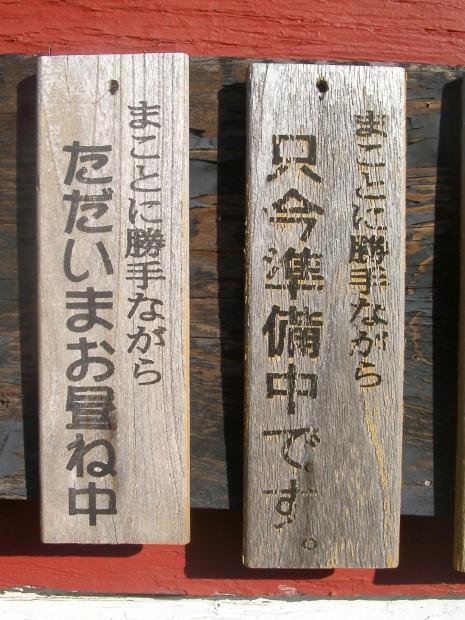 まことに勝手ながら
只今準備中です。
まことに勝手ながら
ただいまお昼ね中